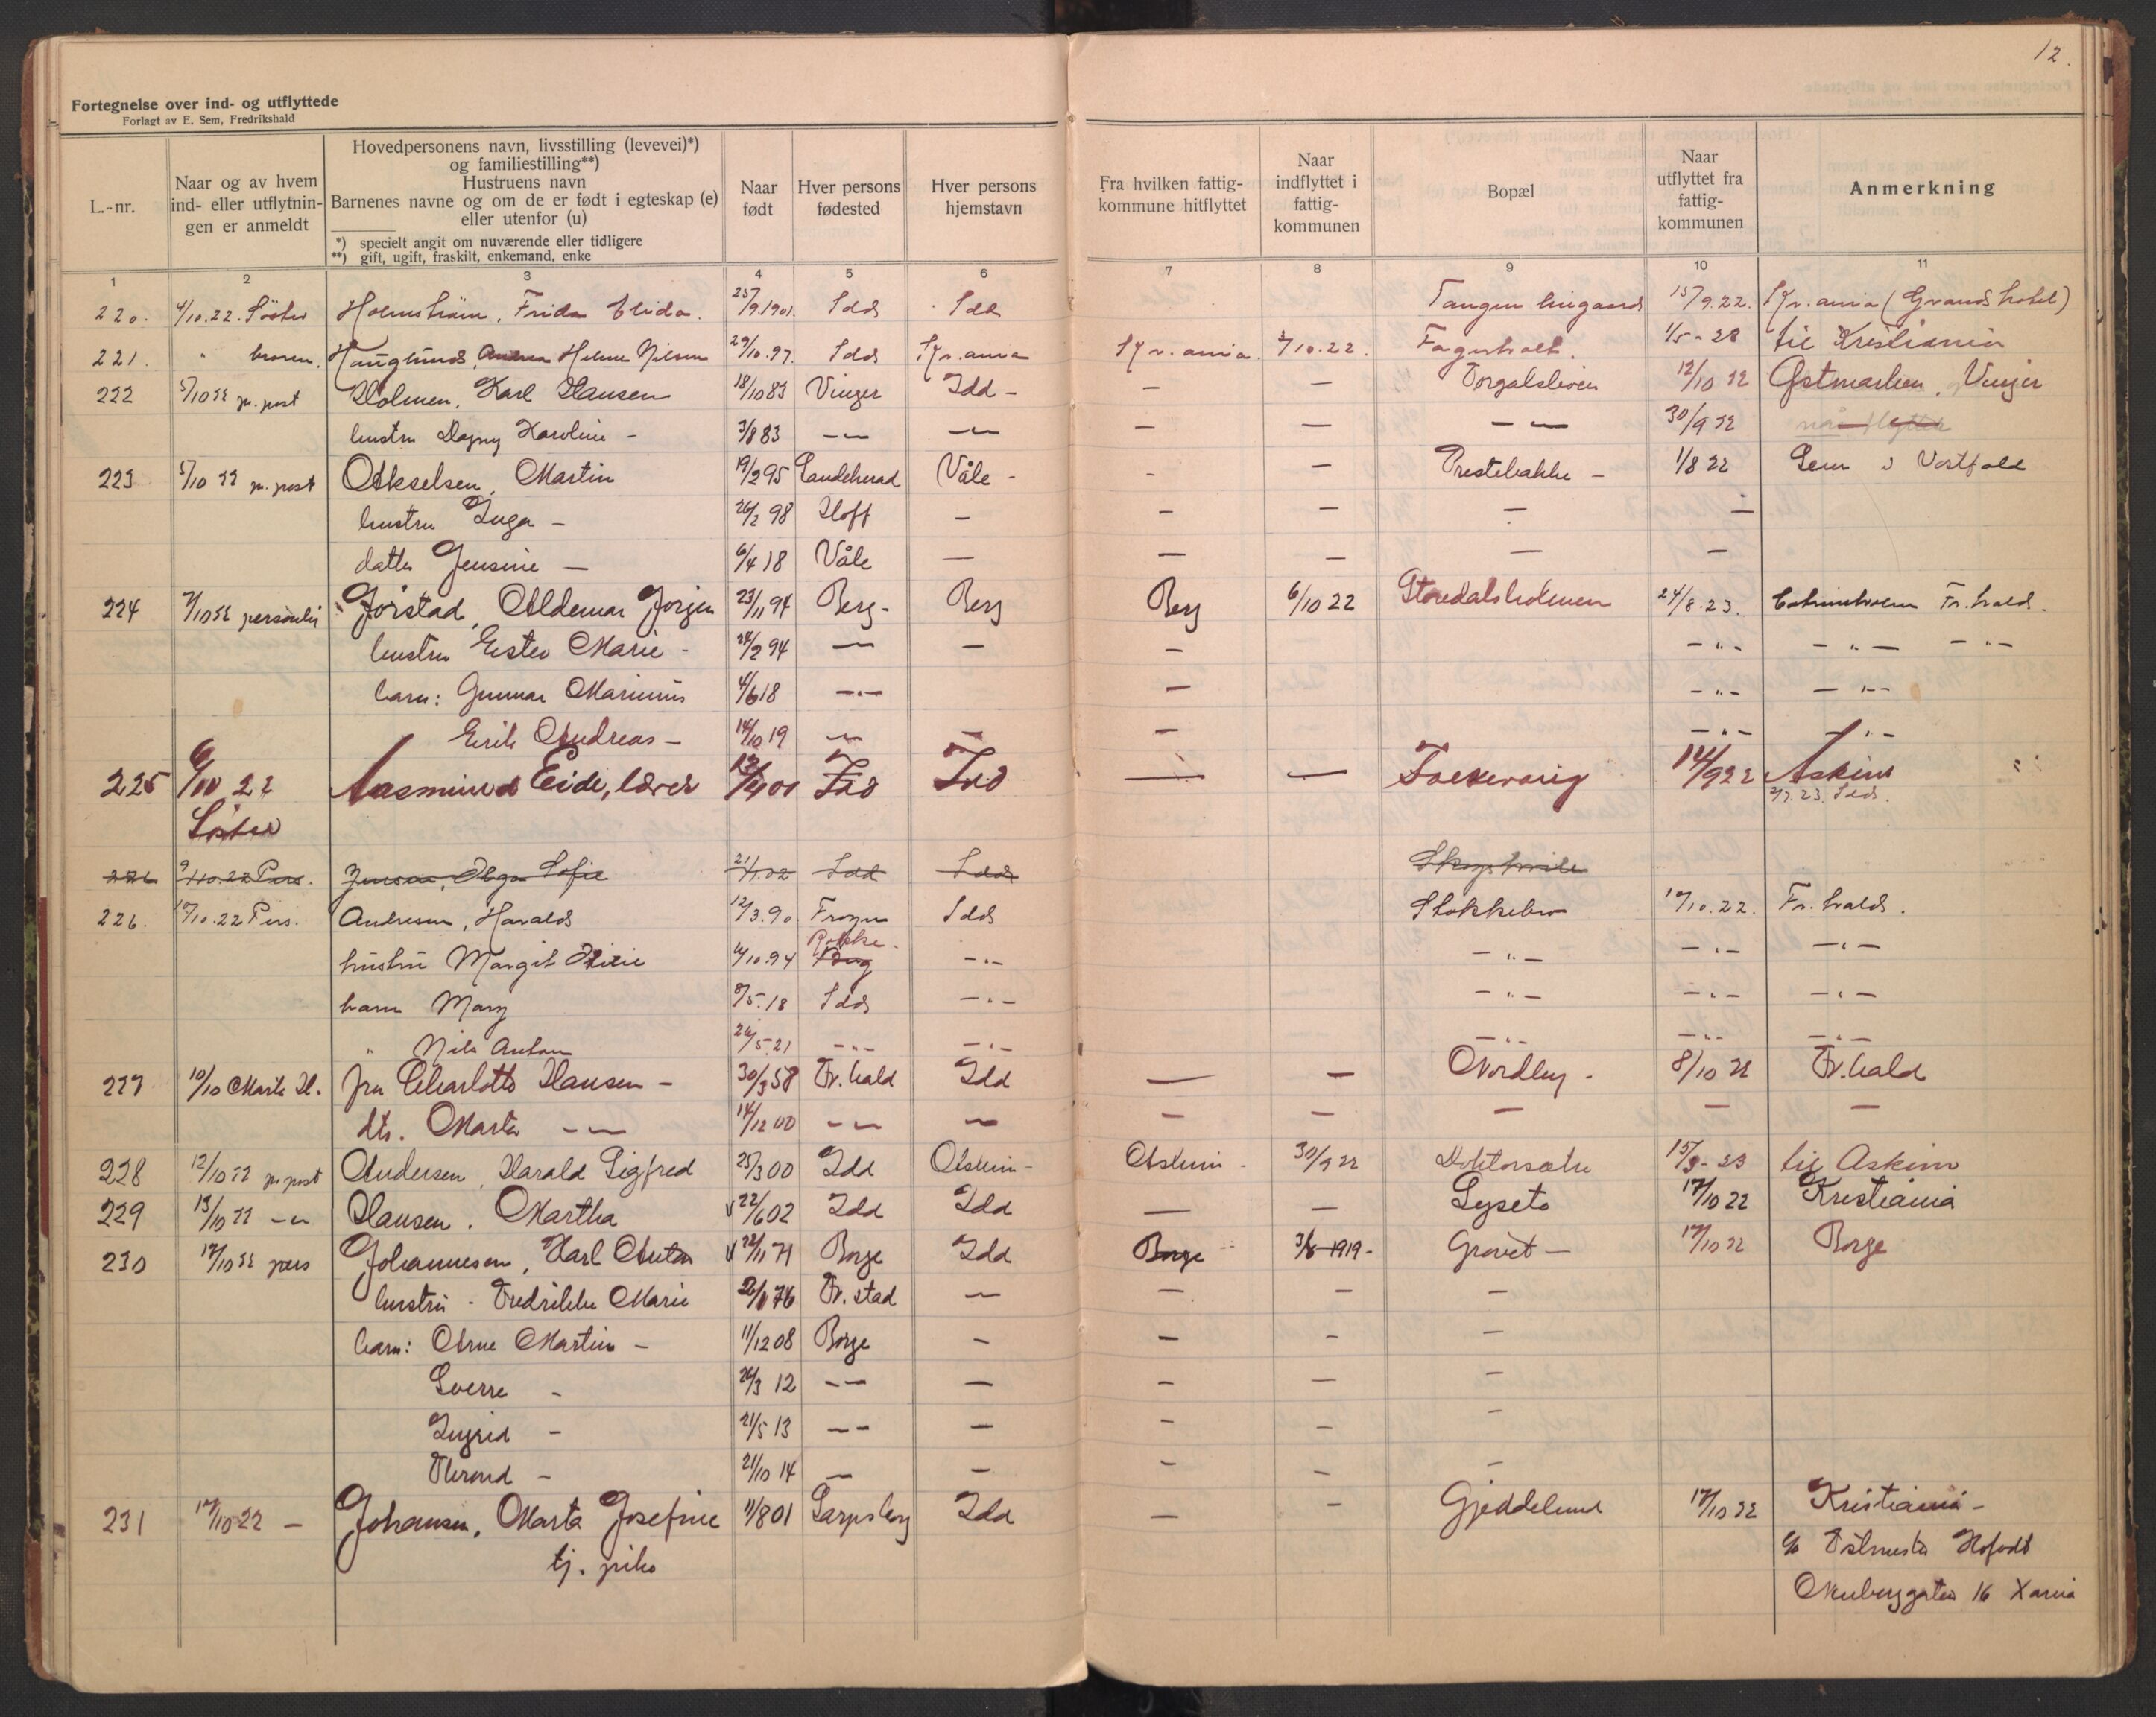 12.
Fortegnelse over ind- og utflyttede
Forlagt av E. Sem, Fredrikshald
L.-nr.
Naar og av hvem ind- eller utflytnin-gen er anmeldt
Hovedpersonens navn, livsstilling (levevei)*)
og familiestilling**)
Hustruens navn
Barnenes navne og om de er født i egteskap (e)
eller utenfor (u)
*) specielt angit om nuværende eller tidligere
**) gift, ugift, fraskilt, enkemand, enke
Naar født
Hver persons fødested
Hver persons hjemstavn
Fra hvilken fattig-kommune hitflyttet
Naar indflyttet i fattig-kommunen
Bopæl
Naar utflyttet fra fattig-kommunen
Anmerkning
1 2 3 4 5 6 7 8 9 10 11
220. 4/10.22. Søster Holmström, Frida Elida. 25/9.1901. Idd Idd Tangen 15/9.22. Kr.ania (Grand hotel)
221. " broren. Hauglund, Helene Nilsen 29/10.97. Idd Kr.ania Kr.ania. 10.22. Fagerholt. 1/5-28 til Kristiania
222 5/10 22 pr. post Holmen, Karl Hansen 18/10 83 Vinger Idd - — — 12/10 22 Østmarken, Vinger
hustru Dagny Karoline - 3/8 83 — — — — — 30/9 22
223 5/10 22 pr. post Akselsen, Martin 19/2 95 Sandeherad Våle - - — Prestebakke - 1/8 22 Sem i Vestfold
hustru Inga - 26/2 98 Hoff — — — — —
datter Jensine — 6/4 18 Våle — — — — —
224 7/10 22 personlig Jørstad, Aldemar Jørgen 23/11 94 Berg - Berg Berg 6/10 22 Storedalsledenen 24/8.23. Fr.hald.
hustru Ester Marie - 24/2 94 — — — - " - - " - - " -
barn: Gunnar Marinius 4/6 18 - " - — - " - - " -
Erik Andreas - 14/10 19 — — — - " - - " -
225 6/10 22 Aasmund Eide, lærer 13/4 00 Idd Idd — — Folkevang 14/9 22 Askim
23. Idd.
Søster
226 9/10.22 Pers. Jensen, Olga Sofie 21/1.02 Idd Idd Skogshvile
226. 10.22 Pers. Andresen, Harald 12/3.90 Frogn Idd Stokkebro 10.22. Fr.hald.
Rokke.
hustru Margit 10.94 Berg - " - - " - - " - - " -
barn Mary 5.18 Idd - " - - " - - " - - " -
" Nils Anton 26/5.21 - " - - " - - " - - " - - " -
227 10/10 Marta H. fru Charlotte Hansen - 30/3 58 Fr.hald Idd — — Nordby - 8/10 22 Fr.hald
dtr. Marta — 14/12 00 — — — — — — —
228 12/10 22 pr. post Andersen, Harald Sigfred 25/3 00 Idd Askim - Askim - 30/9 22 Doktorsætre 15/3-23 til Askim
229 13/10 22 — Hansen, Martha 22/6 02 Idd Idd — — Lyseto 17/10 22 Kristiania
230 17/10 22 pers Johannesen, Karl Anton 22/11 71 Borge Idd Borge 3/8-1919 - Grovet - 17/10 22 Borge
hustru - Fredrikke Marie 26/1 76 Fr.stad — — — —
barn: Arne Martin - 11/12 08 Borge - — - —
Sverre - 26/3 12 — — - — -
Ingrid - 21/5 13 — — - — -
Thrond - 21/10 14 — — - — -
231 17/10 22 — Johansen, Marta Josefine 11/8 01 Sarpsborg Idd — - Gjeddelund 17/10 22 Kristiania -
tj. pike
16 Xania